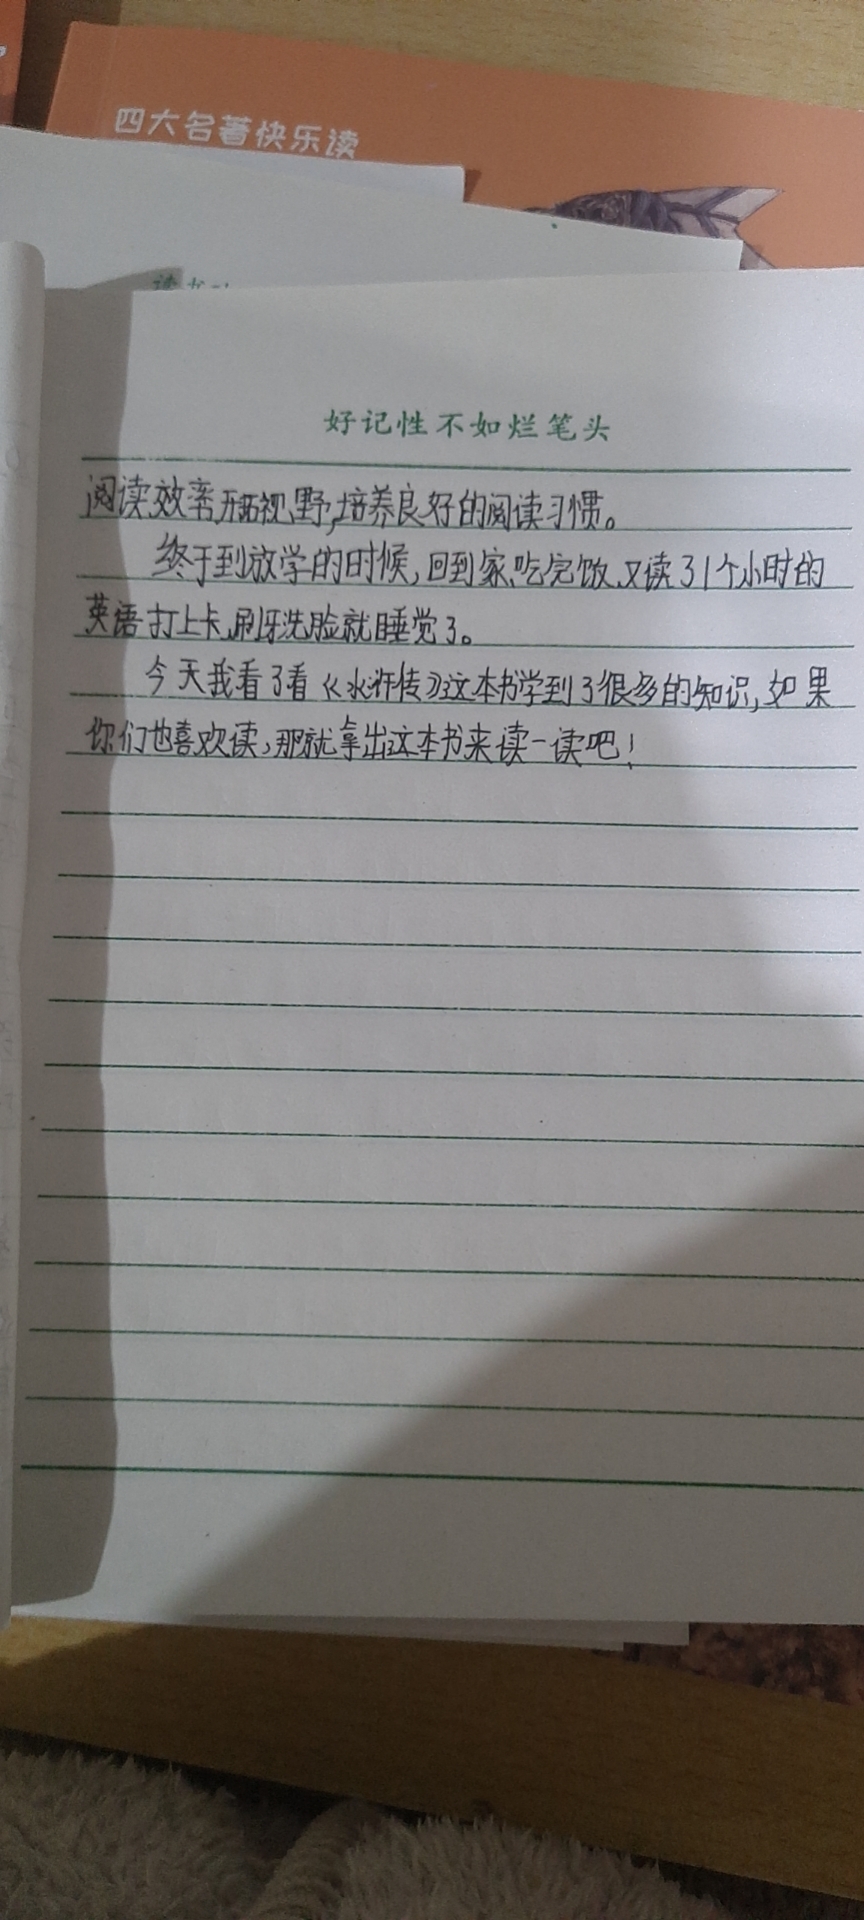 四大名著快乐读
读书
好记性不如烂笔头
阅读效率,开拓视野,培养良好的阅读习惯。
终于到放学的时候,回到家,吃完饭,又读了1个小时的
英语打上卡,刷牙洗脸就睡觉了。
今天我看了看《水浒传》这本书学到了很多的知识,如果
你们也喜欢读,那就拿出这本书来读一读吧!